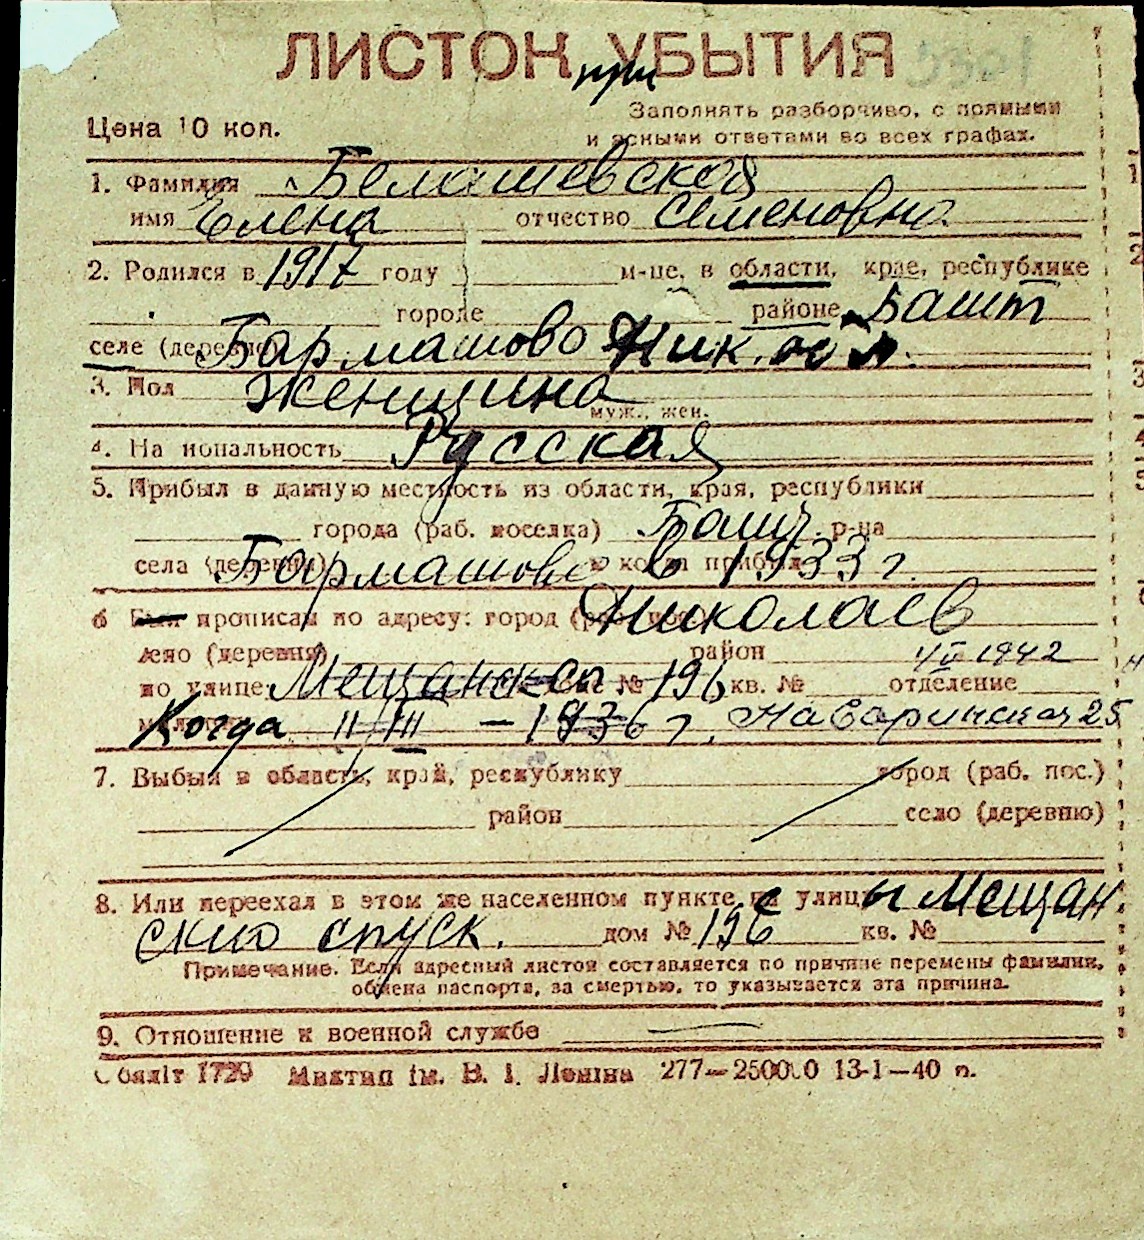 ЛИСТОК при УБЫТИЯ
Цена 10 коп.
Заполнять разборчиво, с прямыми
и ясными ответами во всех графах.
1. Фамилия Белашевская
имя Елена отчество Семеновна
2. Родился в 1917 году м-це, в области, крае, республике
городе районе Башт
селе (деревне) Бармашово Ник. обл.
3. Пол Женщина
муж., жен.
4. Национальность Русская
5. Прибыл в данную местность из области, края, республики
города (раб. поселка) Башт. р-на
села (деревни) Бармашово и когда прибыл в 1933 г.
6 Был прописан по адресу: город (раб. пос.) Николаев
село (деревня) район 1942
по улице Мещанск сп № 196 кв. № отделение
Когда 11/III – 1936 г. Наваринская 25
7. Выбыл в область, край, республику город (раб. пос.)
район село (деревню)
8. Или переехал в этом же населенном пункте на улицы Мещан
ский спуск. дом № 196 кв. №
Примечание. Если адресный листок составляется по причине перемены фамилии,
обмена паспорта, за смертью, то указывается эта причина.
9. Отношение к военной службе
Облліт 1729 Миктип ім. В. І. Леніна 277—250000 13-1—40 п.